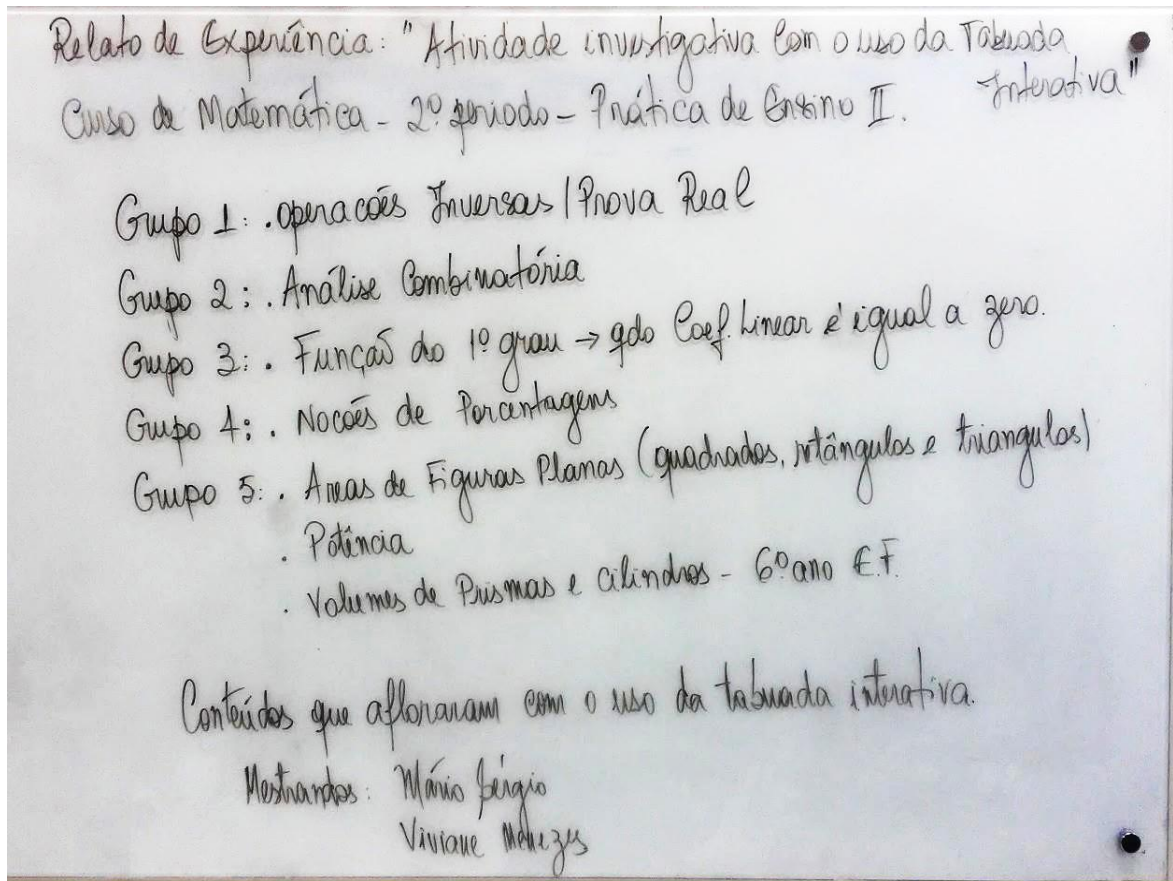 Relato de Experiência: "Atividade investigativa com o uso da Tabuada
Interativa"
Curso de Matemática - 2º período - Prática de Ensino II.
Grupo 1: . operacões Inversas / Prova Real
Grupo 2: . Análise Combinatória
Grupo 3: . Função do 1º grau → qdo Coef. Linear é igual a zero.
Grupo 4: . Nocões de Porcentagens
Grupo 5: . Areas de Figuras Planas (quadrados, retângulos e triangulos)
. Potência
. Volumes de Prismas e cilindros - 6º ano E.F.
Conteúdos que afloraram com o uso da tabuada interativa.
Mestrandos: Mário Sérgio
Viviane Menezes